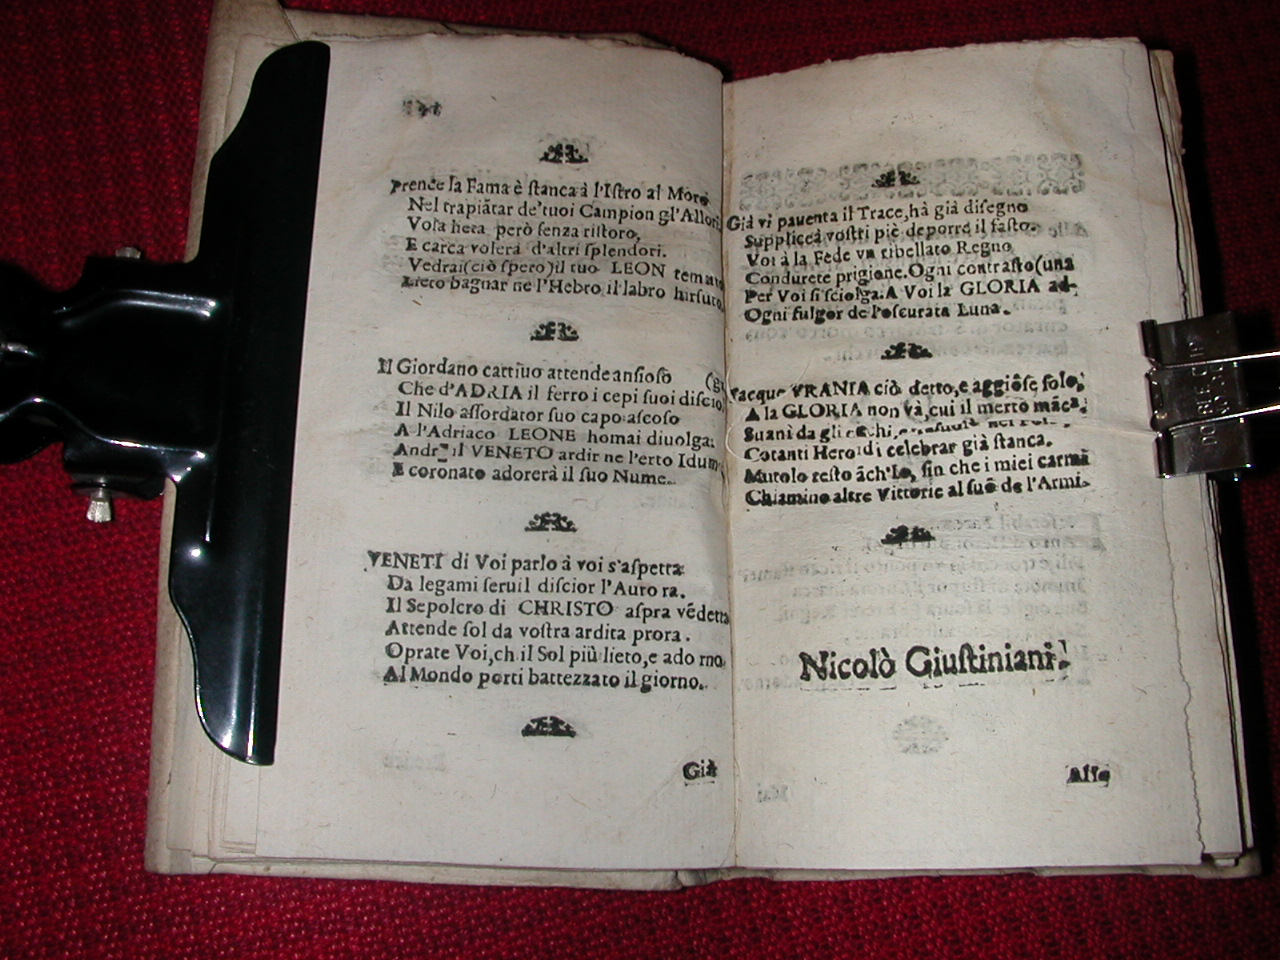 Prence la Fama è ſtanca à l'Iſtro al Moro
Nel trapiãtar de'tuoi Campion gl'Allori,
Vola lieta però ſenza riſtoro,
E carca volerà d'altri ſplendori.
Vedrai(ciò ſpero)il tuo LEON temuto
Lieto bagnar ne l'Hebro il labro hirſuto.
Il Giordano cattiuo attende anſioſo
Che d'ADRIA il ferro i cepi ſuoi diſcio,
Il Nilo aſſordator ſuo capo aſcoſo
A l'Adriaco LEONE homai diuolga:
Andrà il VENETO ardir ne l'erto Idume
E coronato adorerà il ſuo Nume.
VENETI di Voi parlo à voi s'aſpetta
Da legami ſeruil diſcior l'Aurora.
Il Sepolcro di CHRISTO aſpra vẽdetta
Attende ſol da voſtra ardita prora.
Oprate Voi,ch il Sol più lieto,e adorno
Al Mondo porti battezzato il giorno.
Già
Già vi pauenta il Trace,hà già diſegno
Supplice à voſtri piè deporre il faſto.
Voi à la Fede vn ribellato Regno
Condurete prigione.Ogni contraſto(una
Per Voi ſi ſciolga.A Voi la GLORIA ad-
Ogni fulgor de l'oſcurata Luna.
Tacque VRANIA ciò detto,e aggiõſe ſolo,
A la GLORIA non và,cui il merto mãca;
Suanì da gli occhi,
Cotanti Heroi di celebrar già ſtanca.
Mutolo reſto ãch'Io, ſin che i miei carmi
Chiamino altre Vittorie al ſuõ de l'Armi.
Nicolò Giuſtiniani.